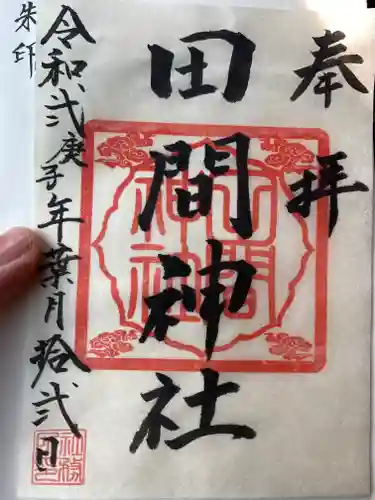 奉拝
田間神社
令和弐庚子年葉月拾弐日
朱印
田間神社